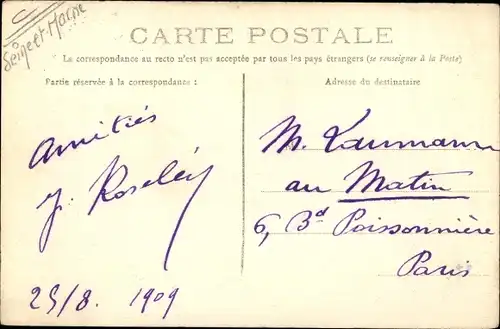 Seine et Marne
CARTE POSTALE
La correspondance au recto n'est pas acceptée par tous les pays étrangers (se renseigner à la Poste)
Partie réservée à la correspondance :
Adresse du destinataire
Amitiés
J.
25/8. 1909
M. Laumann
au Matin
6, Bd Poissonnière
Paris